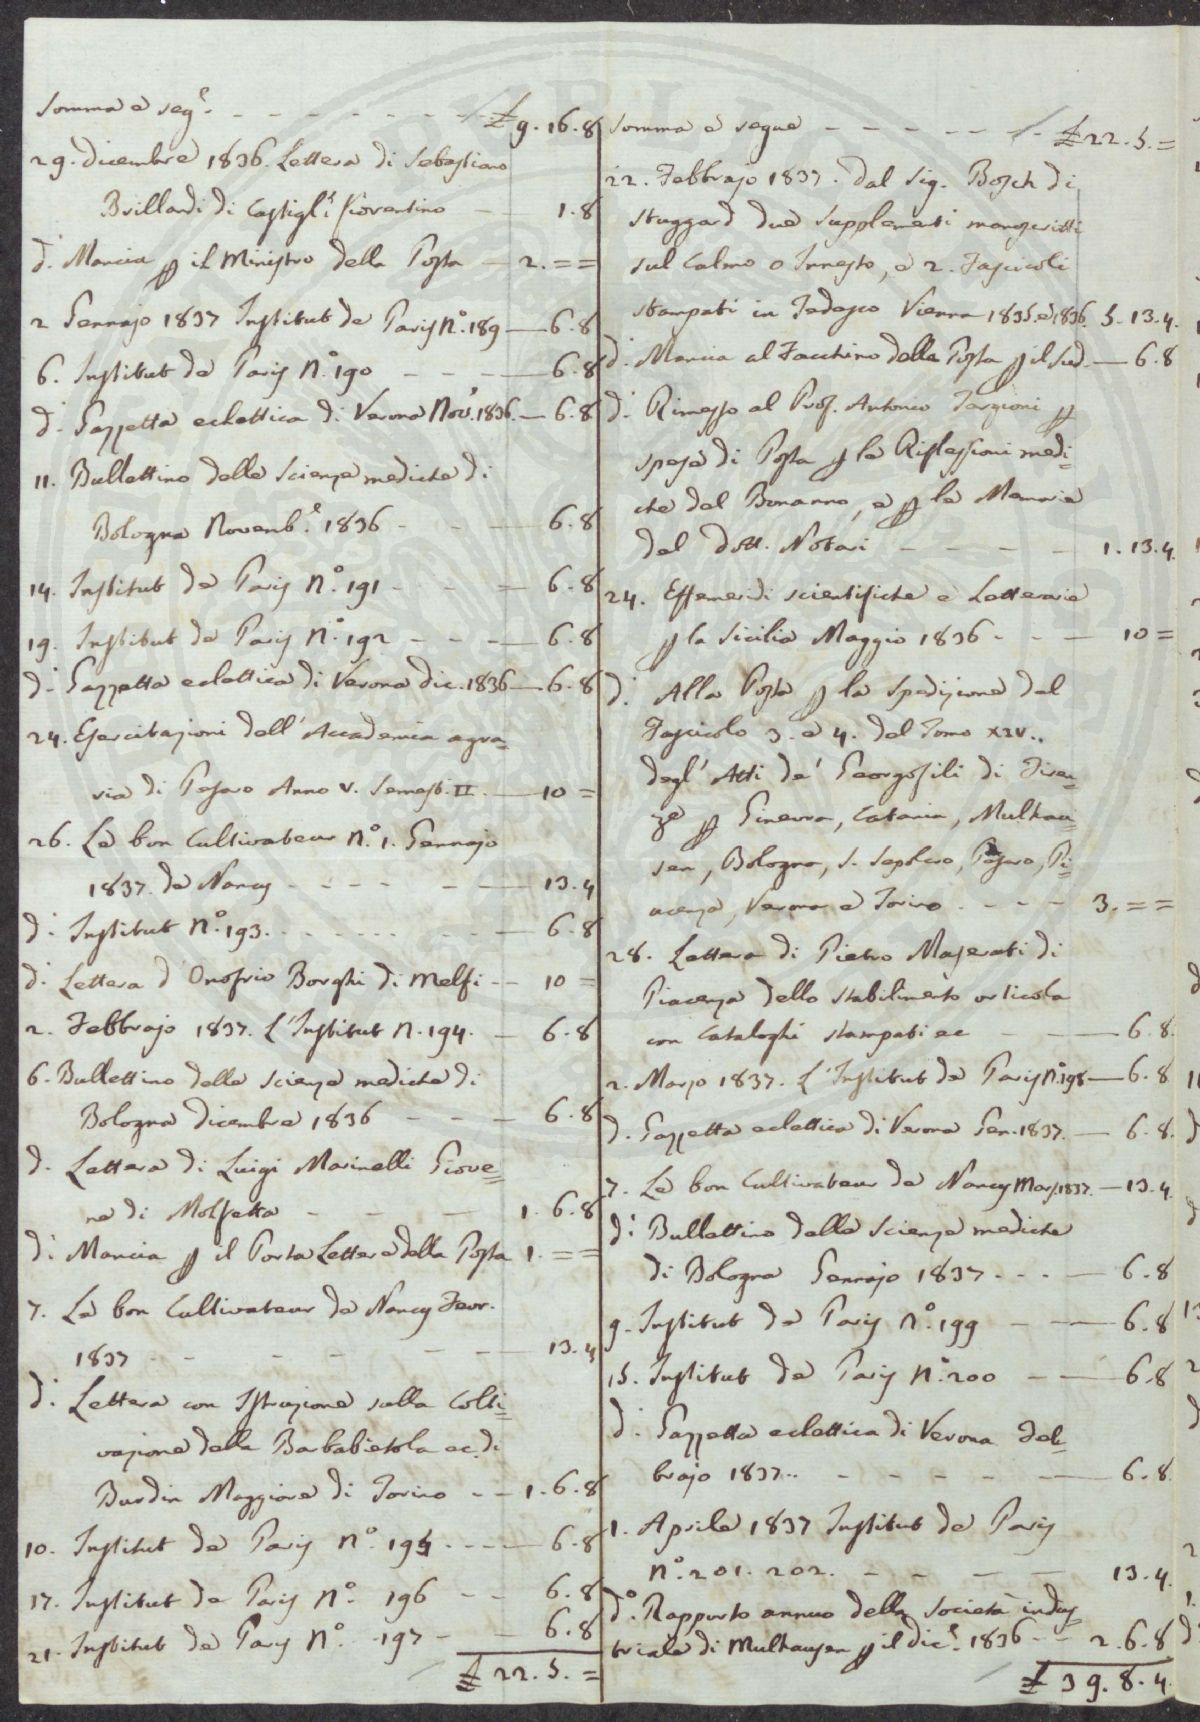 Somma e seg.e - - - - - - - £ 9. 16. 8
29. dicembre 1836. Lettera di Sebastiano
Brillandi di Castigl.e fiorentino - 1. 8
d.o Mancia p il Ministro della Posta - 2. = =
2 Gennajo 1837 Institut de Paris N.o 189 - 6. 8
6. Institut de Paris N.o 190 - - - 6. 8
d.o Gazzetta eclettica di Verona Nov.e 1836. - 6. 8
11. Bullettino delle Scienze mediche di
Bologna Novemb.e 1836 - - - 6. 8
14. Institut de Paris N.o 191 - - = 6. 8
19. Institut de Paris N.o 192 - - - 6. 8
d.o Gazzetta eclettica di Verona dic. 1836 - 6. 8
24. Esercitazioni dell'Accademia agra=
ria di Pesaro Anno V. Semest. II. - 10 =
26. Le bon Cultivateur N.o 1. Gennajo
1837. de Nancy - - - - - - 13. 4
d.o Institut N.o 193. - - - - - 6. 8
d.o Lettera d'Onofrio Borghi di Melfi - - 10 =
2. Febbrajo 1837. L'Institut N. 194. - 6. 8
6. Bullettino delle Scienze mediche di
Bologna dicembre 1836 - - - 6. 8
d. Lettera di Luigi Marinelli Giove=
ne di Molfetta - - - 1. 6. 8
d.o Mancia p il Porta Lettere della Posta 1. = =
7. Le bon Cultivateur de Nancy Fevr.
1837 - - - - - - 13. 4
d.o Lettera con Istruzione sulla Colti=
vazione della Barbabietola ec. di
Burdin Maggiore di Torino - - 1. 6. 8
10. Institut de Paris N.o 195 - - - 6. 8
17. Institut de Paris N.o 196 - - 6. 8
21. Institut de Paris N.o 197 - - 6. 8
£ 22. 5. =
Somma e segue - - - - - - £ 22. 5. =
22. Febbrajo 1837. Dal Sig. Bosch di
Stuggard due Supplementi manoscritti
sul Calmo o Innesto, e 2. Fascicoli
stampati in Tedesco Vienna 1835. e 1836. 5. 13. 4.
d.o Mancia al Facchino della Posta p il Sud. - 6. 8
d.o Rimesso al Prof. Antonio Targioni p
spese di Posta p le Riflessioni medi=
che del Bonanno, e p le Memorie
del dott. Notari - - - - 1. 13. 4.
24. Effemeridi scientifiche e Letterarie
p la Sicilia Maggio 1836 - - - 10 =
d.o Alla Posta p la Spedizione del
Fascicolo 3. e 4. del Tomo XIV..
degl'Atti de' Georgofili di Firen=
ze p Ginevra, Catania, Mulhau=
sen, Bologna, S. Sepolcro, Pesaro, Pi=
acenza, Verona e Torino - - - - 3. = =
28. Lettera di Pietro Maserati di
Piacenza dello Stabilimento orticola
con Cataloghi stampati ec - - 6. 8.
2. Marzo 1837. L'Institut de Paris N.o 198 - 6. 8
d.o Gazzetta eclettica di Verona Gen. 1837. - 6. 8.
7. Le bon Cultivateur de Nancy Marz. 1837. - 13. 4
d.o Bullettino delle Scienze mediche
di Bologna Gennajo 1837 - - - - 6. 8
9. Institut de Paris N.o 199 - - 6. 8
15. Institut de Paris N.o 200 - - 6. 8
d.o Gazzetta eclettica di Verona Feb=
brajo 1837.. - - - - - 6. 8.
1. Aprile 1837 Institut de Paris
N.o 201. 202. - - - - 13. 4.
d.o Rapporto annuo della Società indus=
triale di Mulhausen p il dic.e 1836 - - 2. 6. 8
£ 39. 8. 4.